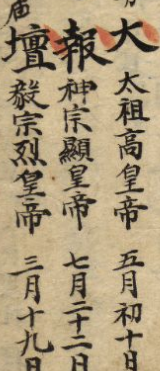 大報壇
太祖高皇帝 五月初十日
神宗顯皇帝 七月二十二日
毅宗烈皇帝 三月十九日